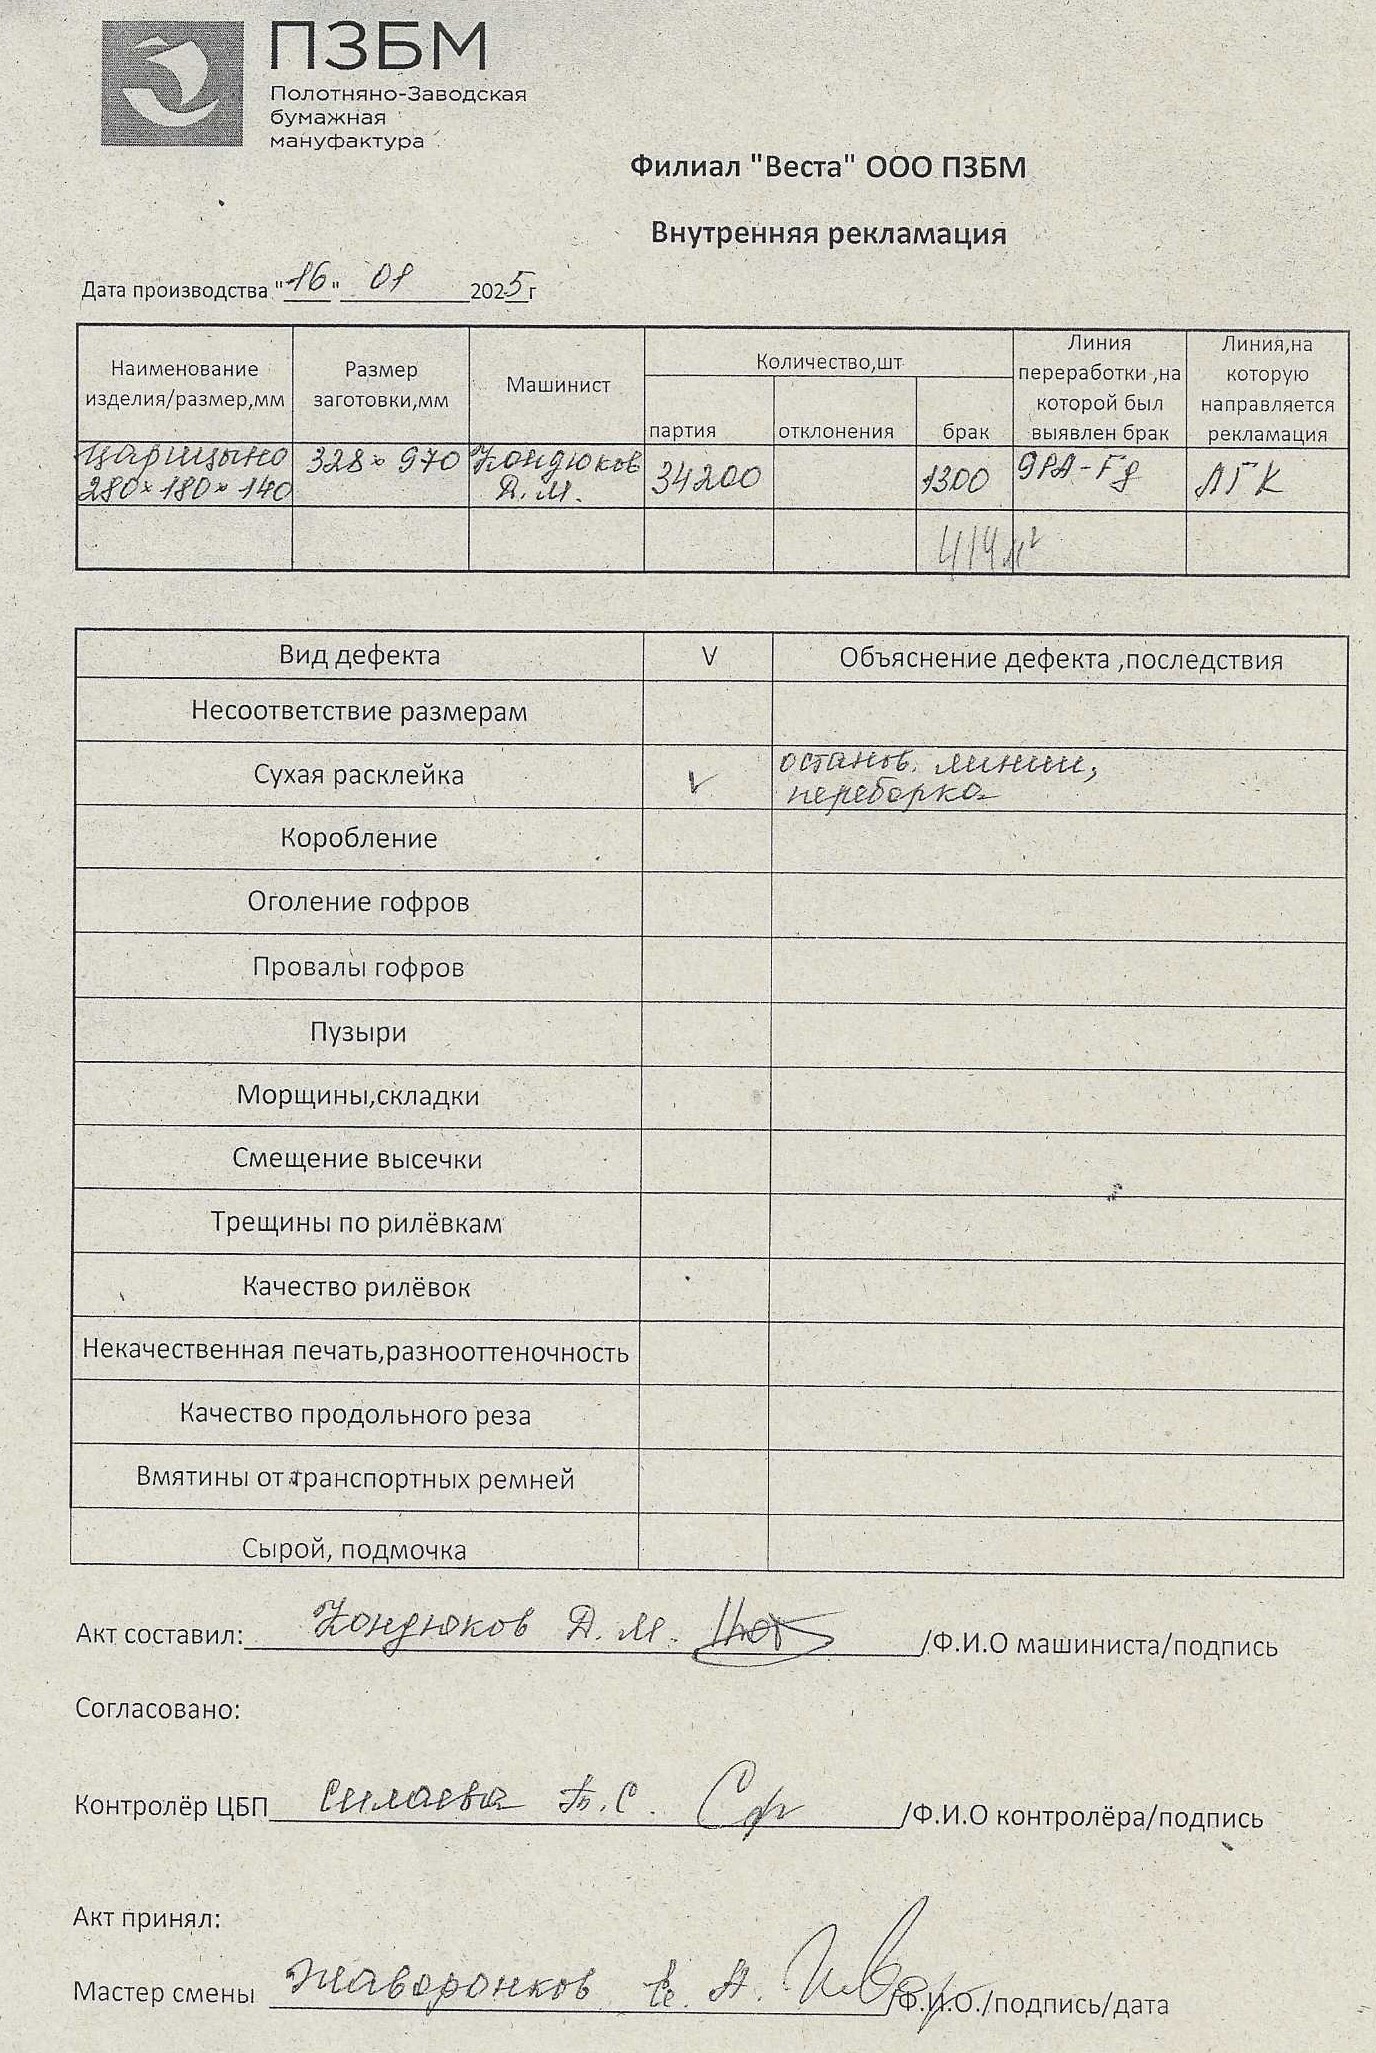 ПЗБМ
Полотняно-Заводская
бумажная
мануфактура
Филиал "Веста" ООО ПЗБМ
Внутренняя рекламация
Дата производства "16" 01 2025 г
Наименование изделия/размер,мм
Размер заготовки,мм
Машинист
Количество,шт
партия
отклонения
брак
Линия переработки ,на которой был выявлен брак
Линия,на которую направляется рекламация
Царицыно 280×180×140
328×970
Кондюков Д.М.
34200
1300
ЛГК
414 м²
Вид дефекта V Объяснение дефекта ,последствия
Несоответствие размерам
Сухая расклейка V останов. линии,
переборка
Коробление
Оголение гофров
Провалы гофров
Пузыри
Морщины,складки
Смещение высечки
Трещины по рилёвкам
Качество рилёвок
Некачественная печать,разнооттеночность
Качество продольного реза
Вмятины от транспортных ремней
Сырой, подмочка
Акт составил: Кондюков Д. М. /Ф.И.О машиниста/подпись
Согласовано:
Контролёр ЦБП Силаева Т.С. /Ф.И.О контролёра/подпись
Акт принял:
Мастер смены Жаворонков Е. А. /Ф.И.О./подпись/дата